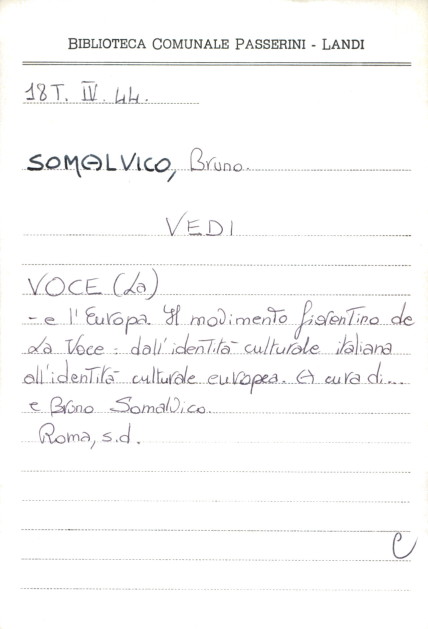 BIBLIOTECA COMUNALE PASSERINI - LANDI
18T. IV. 44.
SOMALVICO, Bruno.
VEDI
VOCE (La)
- e l'Europa. Il movimento fiorentino de
La Voce: dall'identità culturale italiana
all'identità culturale europea. A cura di...
e Bruno Somalvico.
Roma, s.d.
C